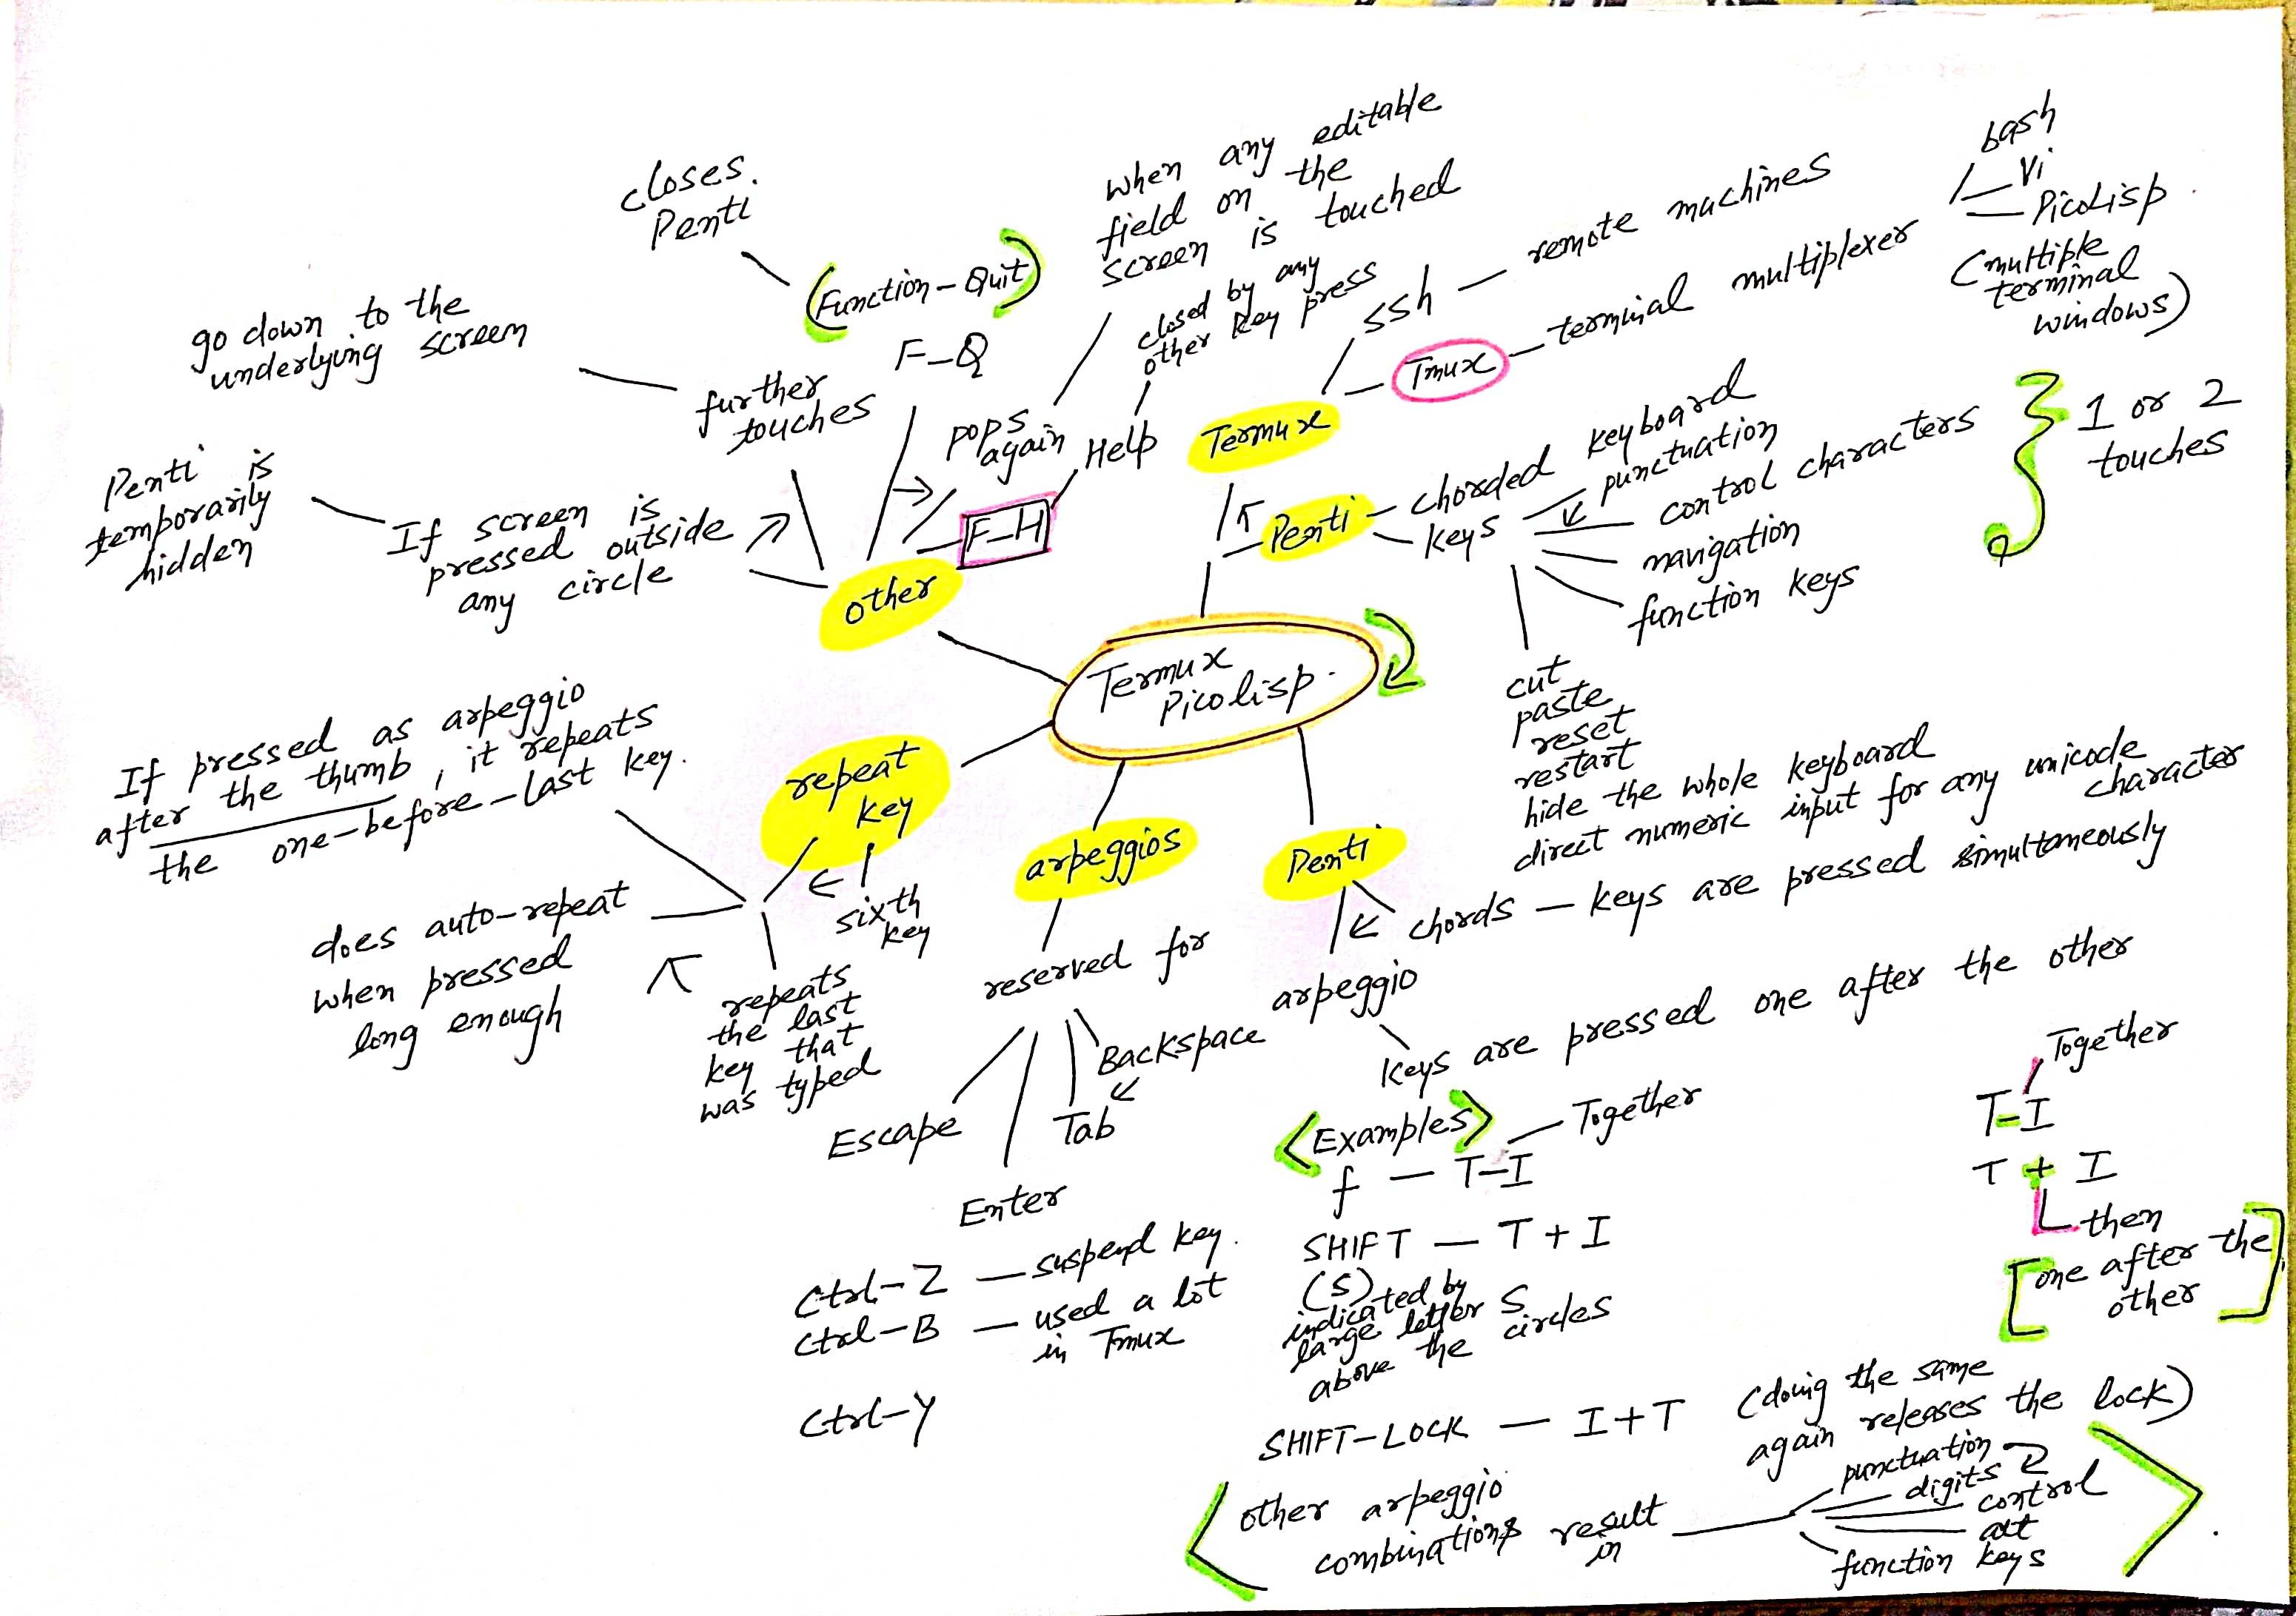 Termux
Picolisp.
Termux
ssh — remote machines
Tmux — terminal multiplexer
bash
Vi
Picolisp
(multiple
terminal
windows)
Penti
chorded keyboard
keys
punctuation
control characters
navigation
function keys
1 or 2
touches
cut
paste
reset
restart
hide the whole keyboard
direct numeric input for any unicode
character
Penti
chords — keys are pressed simultaneously
arpeggio
keys are pressed one after the other
<Examples>
f — T-I
Together
SHIFT — T + I
(S)
indicated by
large letter S
above the circles
SHIFT-LOCK — I+T
(doing the same
again releases the lock)
Together
T-I
T + I
then
[one after the
other]
other arpeggio
combinations result
in
punctuation
digits
control
alt
function keys
arpeggios
reserved for
Backspace
Tab
Enter
Escape
Ctrl-Z — suspend key.
Ctrl-B — used a lot
in Tmux
Ctrl-Y
repeat
key
sixth
key
repeats
the last
key that
was typed
does auto-repeat
when pressed
long enough
If pressed as arpeggio
after the thumb, it repeats
the one-before-last key.
other
If screen is
pressed outside
any circle
Penti is
temporarily
hidden
further
touches
go down to the
underlying screen
F-Q
(Function-Quit)
closes
Penti
pops
again
when any editable
field on the
screen is touched
F-H
Help
closed by any
other key press